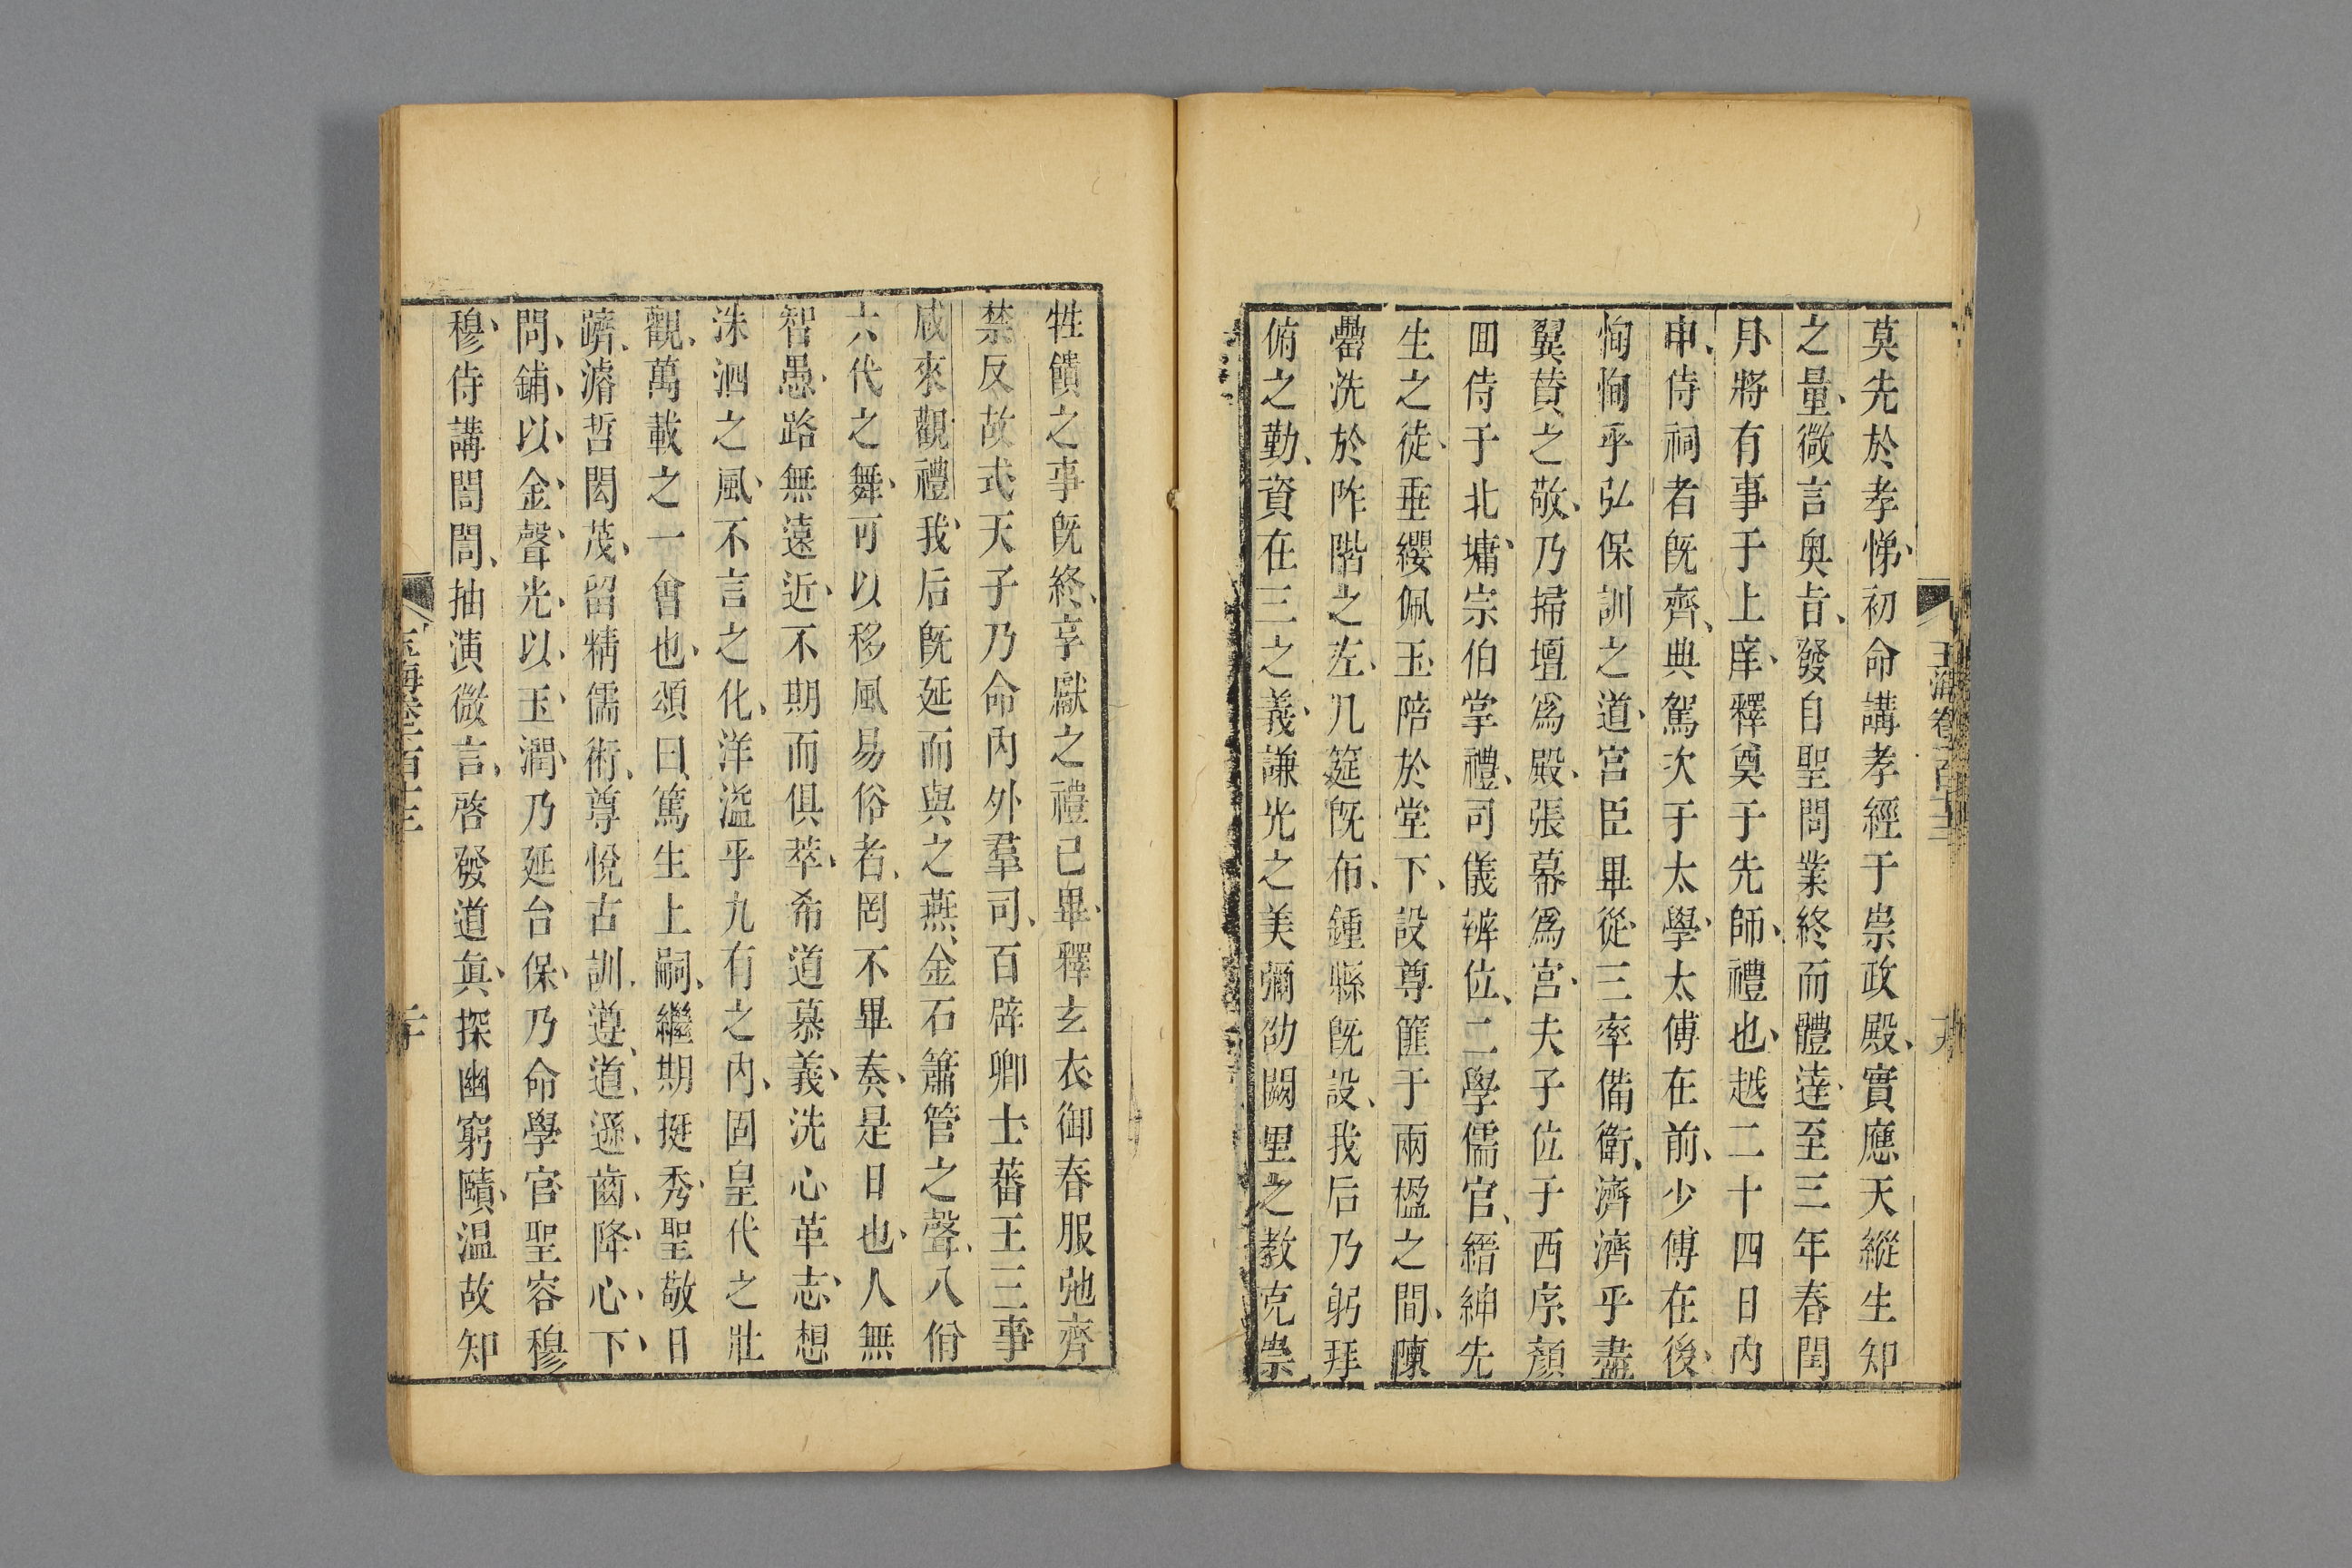 玉海卷一百十三
十九
莫先於孝悌、初命講孝經于崇政殿、實應天縱生知
之量、微言奧旨、發自聖問業終而體達、至三年春閏
月將有事于上庠、釋奠于先師、禮也、越二十四日丙
申、侍祠者旣齊、典駕次于太學、太傅在前、少傅在後、
恂恂乎弘保訓之道、宮臣畢從三率備衛、濟濟乎盡
翼賛之敬、乃掃壇爲殿、張幕爲宮、夫子位于西序、顏
回侍于北墉、宗伯掌禮、司儀辨位、二學儒官、縉紳先
生之徒、垂纓佩玉陪於堂下、設尊篚于兩楹之間、陳
罍洗於阼階之左、几筵旣布、鍾縣旣設、我后乃躬拜
俯之勤、資在三之義、謙光之美彌劭闕里之教克崇
牲饋之事旣終、享獻之禮已畢、釋玄衣御春服弛齊
禁反故式天子乃命內外羣司、百辟卿士、蕃王三事
咸來觀禮、我后旣延而與之燕、金石簫管之聲、八佾
六代之舞、可以移風易俗者、罔不畢奏、是日也、人無
智愚、路無遠近、不期而俱萃、希道慕義、洗心革志、想
洙泗之風、不言之化、洋溢乎九有之內、固皇代之壯
觀、萬載之一會也、頌曰、篤生上嗣、繼期挺秀、聖敬日
躋、濬哲閎茂、留精儒術、尊悅古訓、遵道、遜齒、降心、下
問、鋪以金聲、光以玉潤、乃延台保、乃命學官聖容穆
穆、侍講誾誾、抽演微言、啓發道眞、探幽窮賾、温故知
玉海卷一百十三
二十